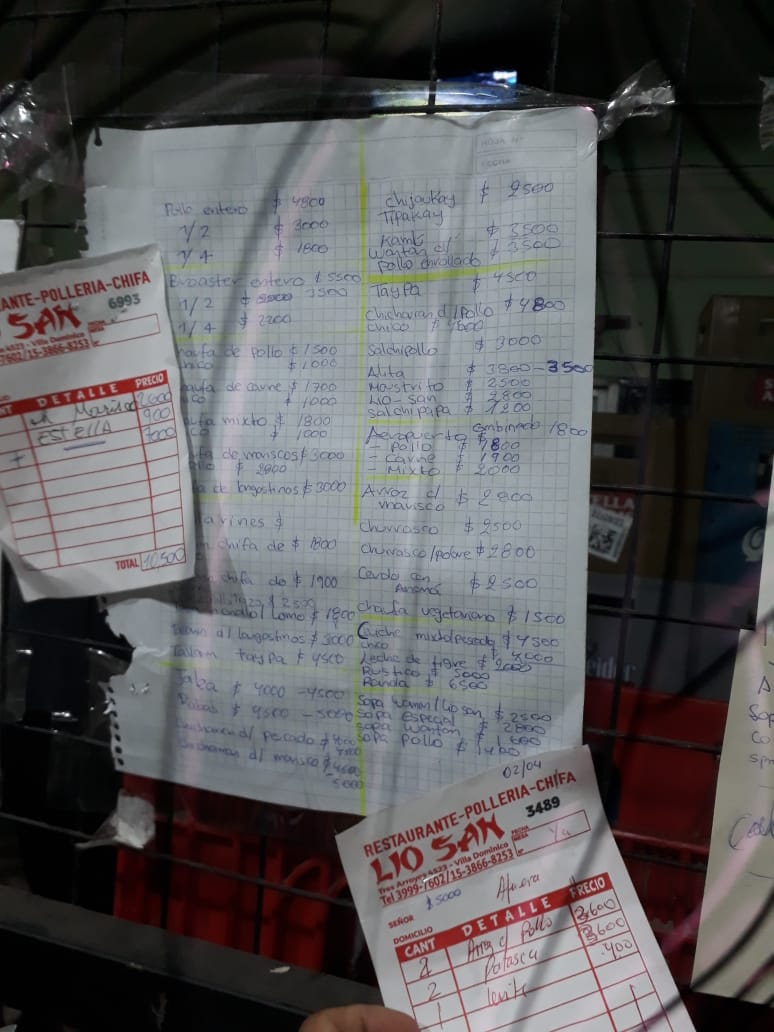 HOJA Nº
FECHA
Pollo entero $ 4800
1/2 $ 3000
1/4 $ 1800
Broaster entero $ 5500
1/2 $ 3500
1/4 $ 2200
haufa de pollo $ 1500
hico $ 1000
aufa de carne $ 1700
ico $ 1000
ufa mixto $ 1800
co $ 1000
fa de mariscos $ 3000
$ 2800
a de langostinos $ 3000
larines $
chifa de $ 1800
chifa de $ 1900
$ 2500
Lomo $ 1800
d/ langostinos $ 3000
Tallarn taypa $ 4500
Jalea $ 4000 - 4500
$ 4500 - 5000
d/ pescado $
d/ marisco $ 4500
5000
Chijaukay $ 2500
Tipakay
Kamlú $ 3500
Wantan d/ $ 3500
pollo enrollado
Taypa $ 4500
Chicharron d/pollo $ 4800
chico $ 4000
Salchipollo $ 3000
Alita $ 3300 - 3500
Mostrito $ 2500
Lio-san $ 2800
Salchipapa $ 1200
Aeropuerto $ combinado 1800
- Pollo $ 1800
- Carne $ 1900
- Mixto $ 2000
Arroz c/ $ 2800
marisco
Churrasco $ 2500
Churrasco/pobre $ 2800
Cerdo con $ 2500
Chaufa vegetariano $ 1500
Ceviche mixto/pescado $ 4500
chico $ 4000
Leche de tigre $ 2000
Rustico $ 5000
Ronda $ 6500
Sopa wantan/Lio san $ 2500
Sopa especial $ 2800
Sopa wantan $
Sopa pollo $ 1400
ANTE-POLLERIA-CHIFA
6993
SAN
4523 - Villa Dominico
7602/15-3866-8253
CANT DETALLE PRECIO
2600
ESTELLA 900
7000
TOTAL 10.500
02/04
RESTAURANTE-POLLERIA-CHIFA
LIO SAN 3489
Tres Arroyos 4523 - Villa Dominico
Tel 3999-7602/15-3866-8253
FECHA
Ya
SEÑOR $ 5000 Afuera
DOMICILIO
CANT DETALLE PRECIO
2 Arroz c/ Pollo 3600
2 Patasca 3600
1 400